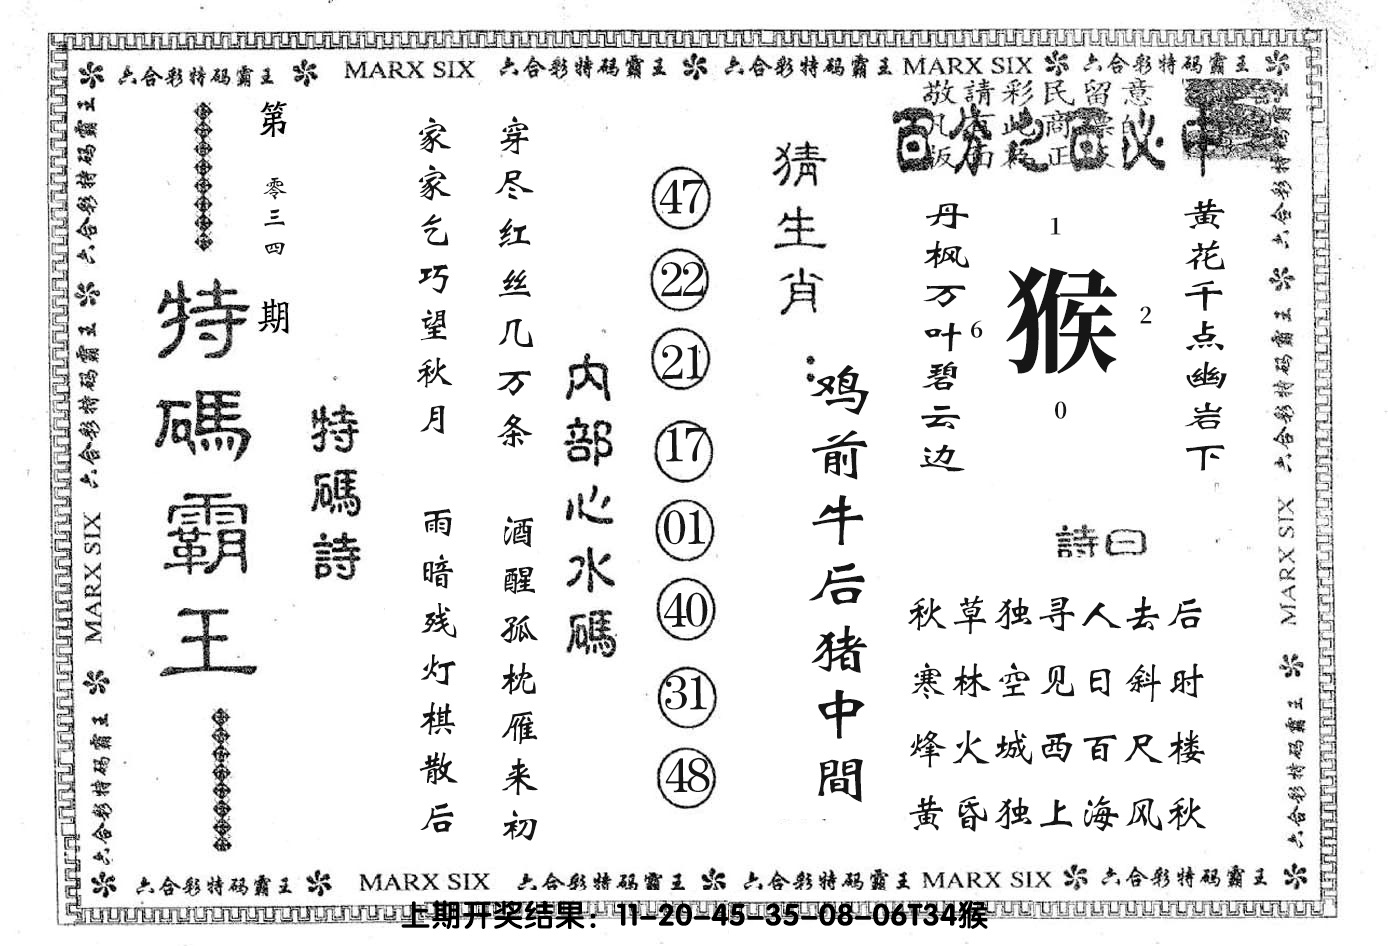 六合彩特码霸王 MARX SIX 六合彩特码霸王 六合彩特码霸王 MARX SIX 六合彩特码霸王
敬請彩民留意
百分之百必中
黄花千点幽岩下
1
6 猴 2
0
丹枫万叶碧云边
詩曰
秋草独寻人去后
寒林空见日斜时
烽火城西百尺楼
黄昏独上海风秋
猜生肖：
鸡前牛后猪中間
47
22
21
17
01
40
31
48
内部心水碼
穿尽红丝几万条 酒醒孤枕雁来初
家家乞巧望秋月 雨暗残灯棋散后
特碼詩
第零三四期
特碼霸王
六合彩特码霸王 六合彩特码霸王 MARX SIX 六合彩特码霸王
六合彩特码霸王 六合彩特码霸王 MARX SIX 六合彩特码霸王
六合彩特码霸王 MARX SIX 六合彩特码霸王 六合彩特码霸王 MARX SIX 六合彩特码霸王
上期开奖结果：11-20-45-35-08-06T34猴